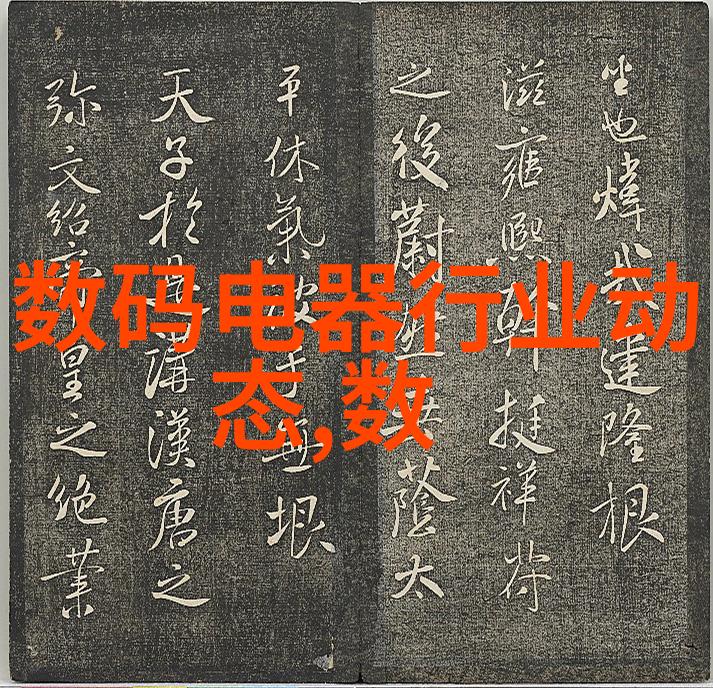 也煒建隆根
滋雍熙幹挺祥符
之後蔚蔭太
平休氣被乎無垠
天子於是講漢唐之
弥文紹高皇之絶業
数码电器行业动
态,数